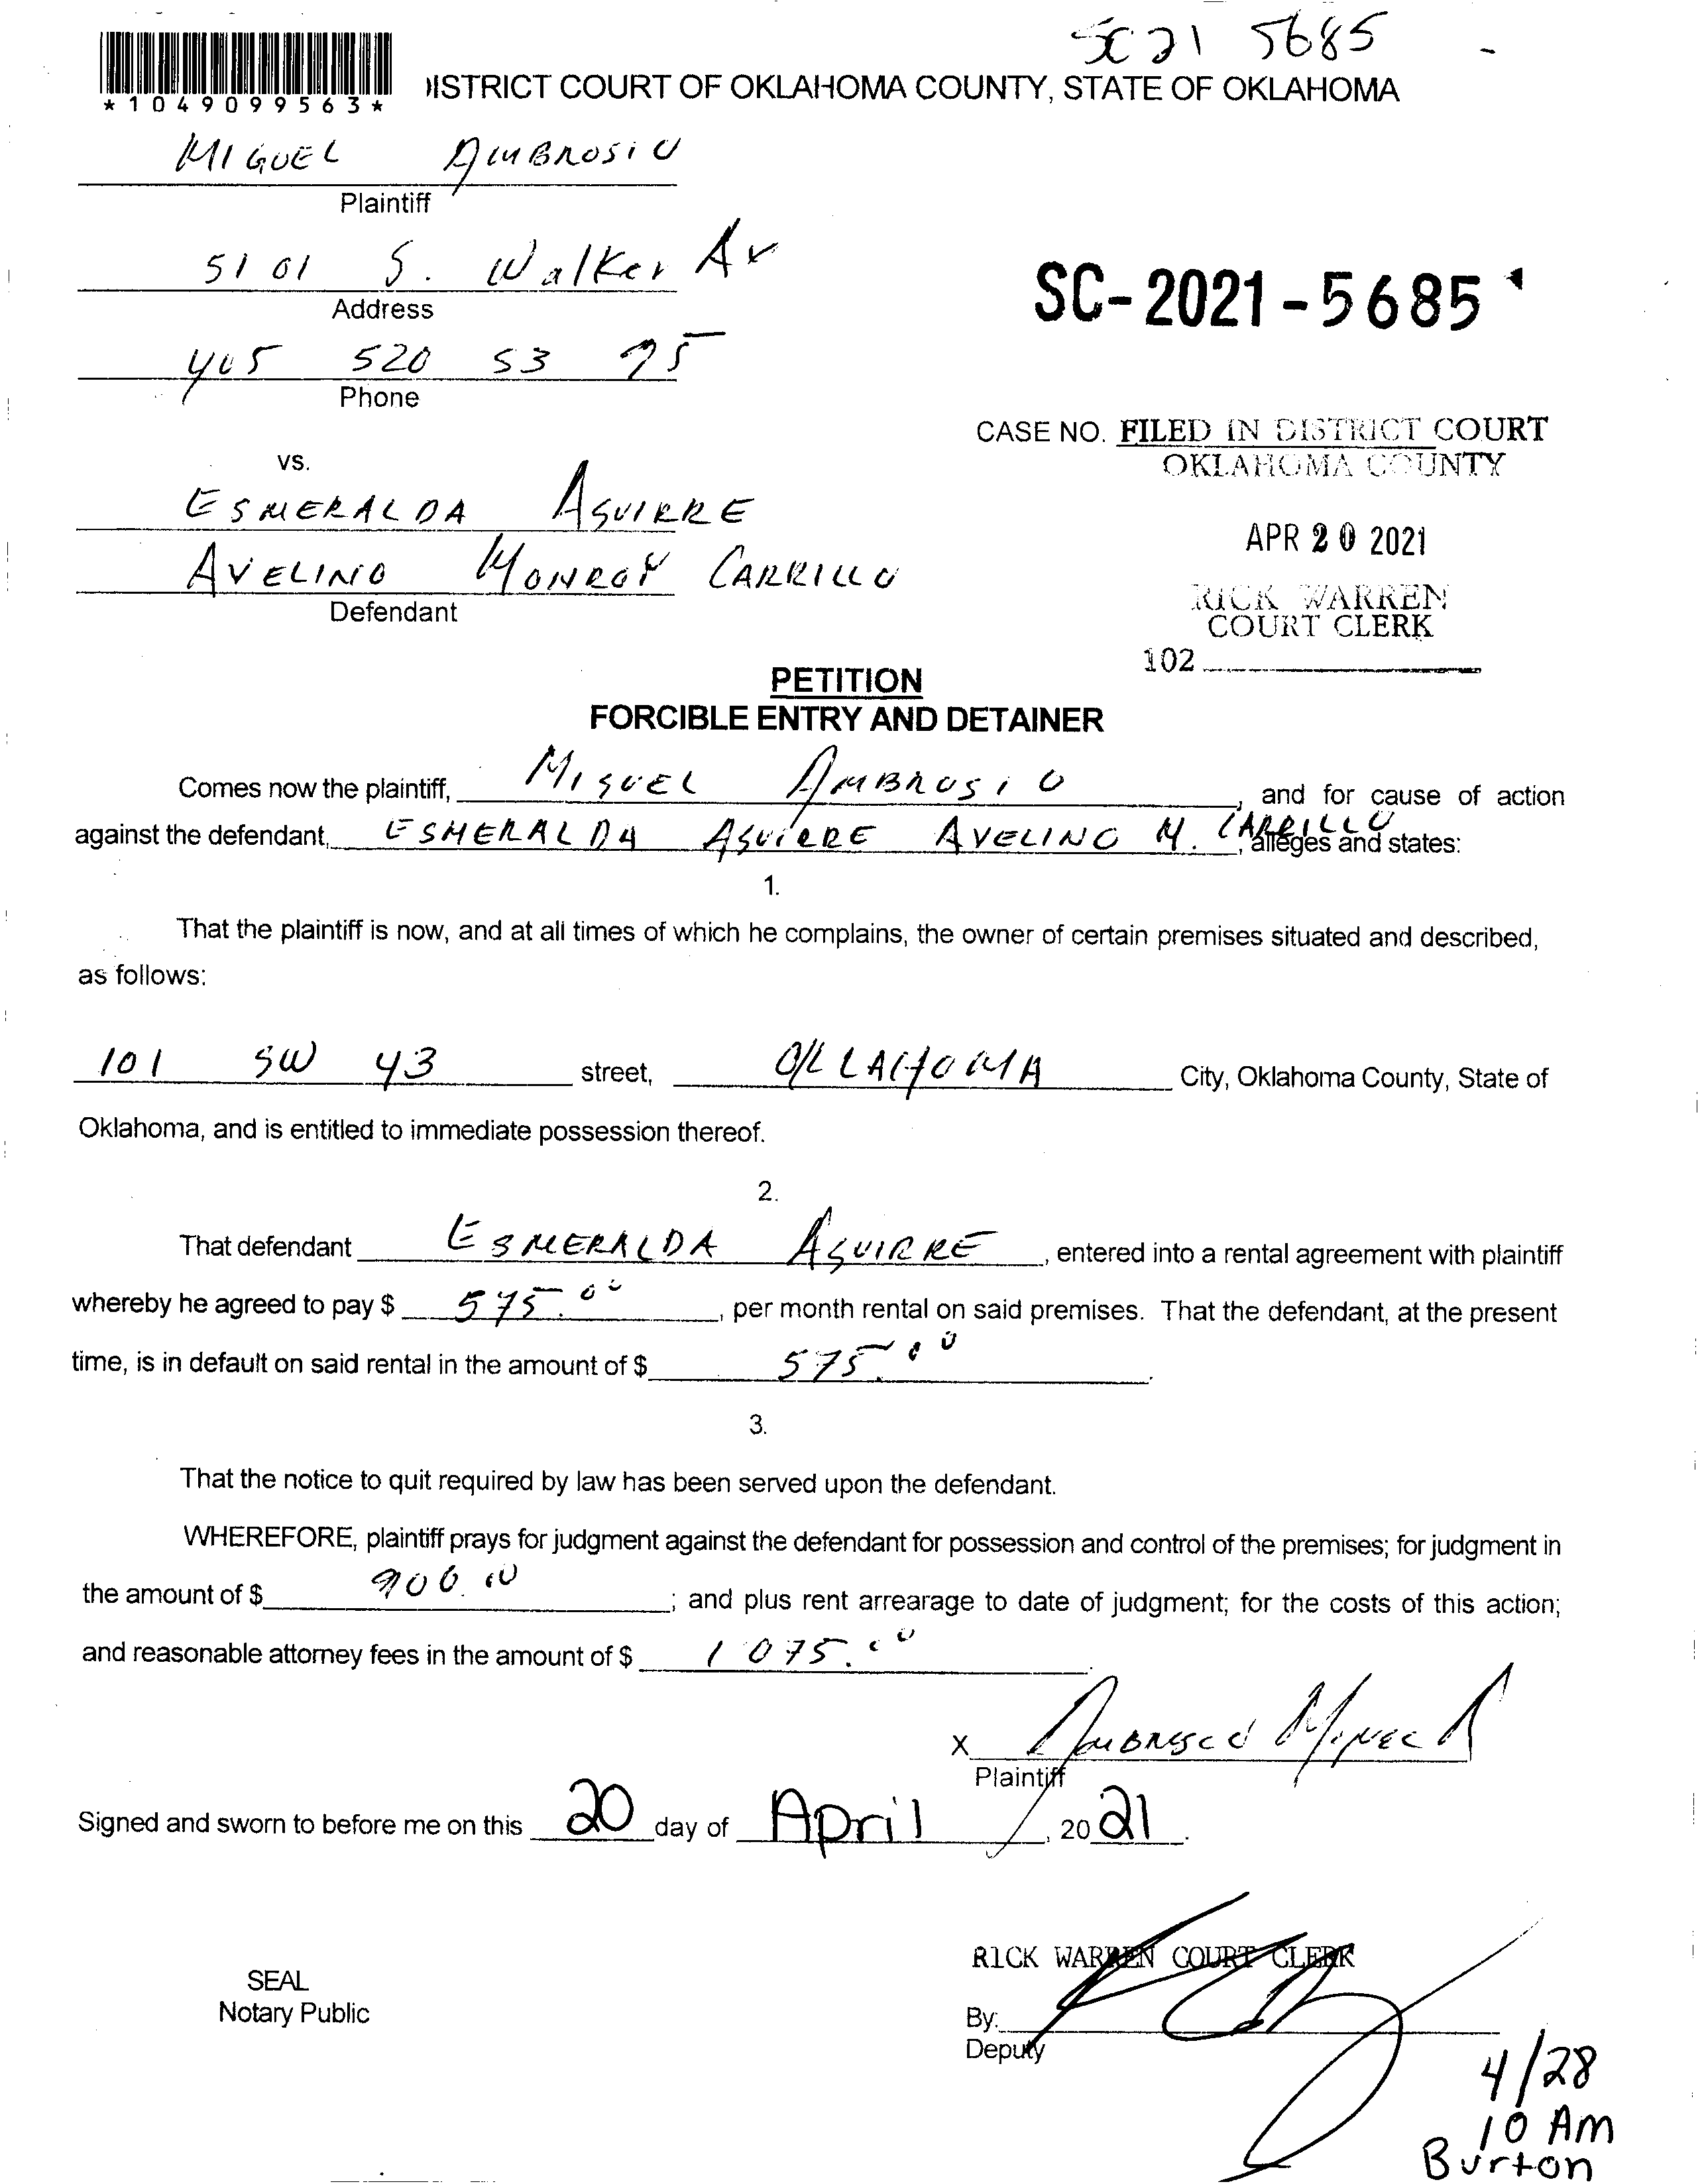 SC 21 5685
*1049099563*
DISTRICT COURT OF OKLAHOMA COUNTY, STATE OF OKLAHOMA
MIGUEL AMBROSIO
Plaintiff
5101 S. Walker Av
Address
SC-2021-5685
405 520 53 75
Phone
CASE NO. FILED IN DISTRICT COURT
OKLAHOMA COUNTY
vs.
ESMERALDA AGUIRRE
APR 20 2021
AVELINO MONROY CARRILLO
Defendant
RICK WARREN
COURT CLERK
102
PETITION
FORCIBLE ENTRY AND DETAINER
Comes now the plaintiff, MIGUEL AMBROSIO, and for cause of action
against the defendant, ESMERALDA AGUIRRE AVELINO M. CARRILLO, alleges and states:
1.
That the plaintiff is now, and at all times of which he complains, the owner of certain premises situated and described,
as follows:
101 SW 43 street, OKLAHOMA City, Oklahoma County, State of
Oklahoma, and is entitled to immediate possession thereof.
2.
That defendant ESMERALDA AGUIRRE, entered into a rental agreement with plaintiff
whereby he agreed to pay $ 575.00, per month rental on said premises. That the defendant, at the present
time, is in default on said rental in the amount of $ 575.00.
3.
That the notice to quit required by law has been served upon the defendant.
WHEREFORE, plaintiff prays for judgment against the defendant for possession and control of the premises; for judgment in
the amount of $ 900.00; and plus rent arrearage to date of judgment; for the costs of this action;
and reasonable attorney fees in the amount of $ 1075.00.
X
Plaintiff
Signed and sworn to before me on this 20 day of April, 2021.
RICK WARREN COURT CLERK
SEAL
Notary Public
By:
Deputy
4/28
10 AM
Burton